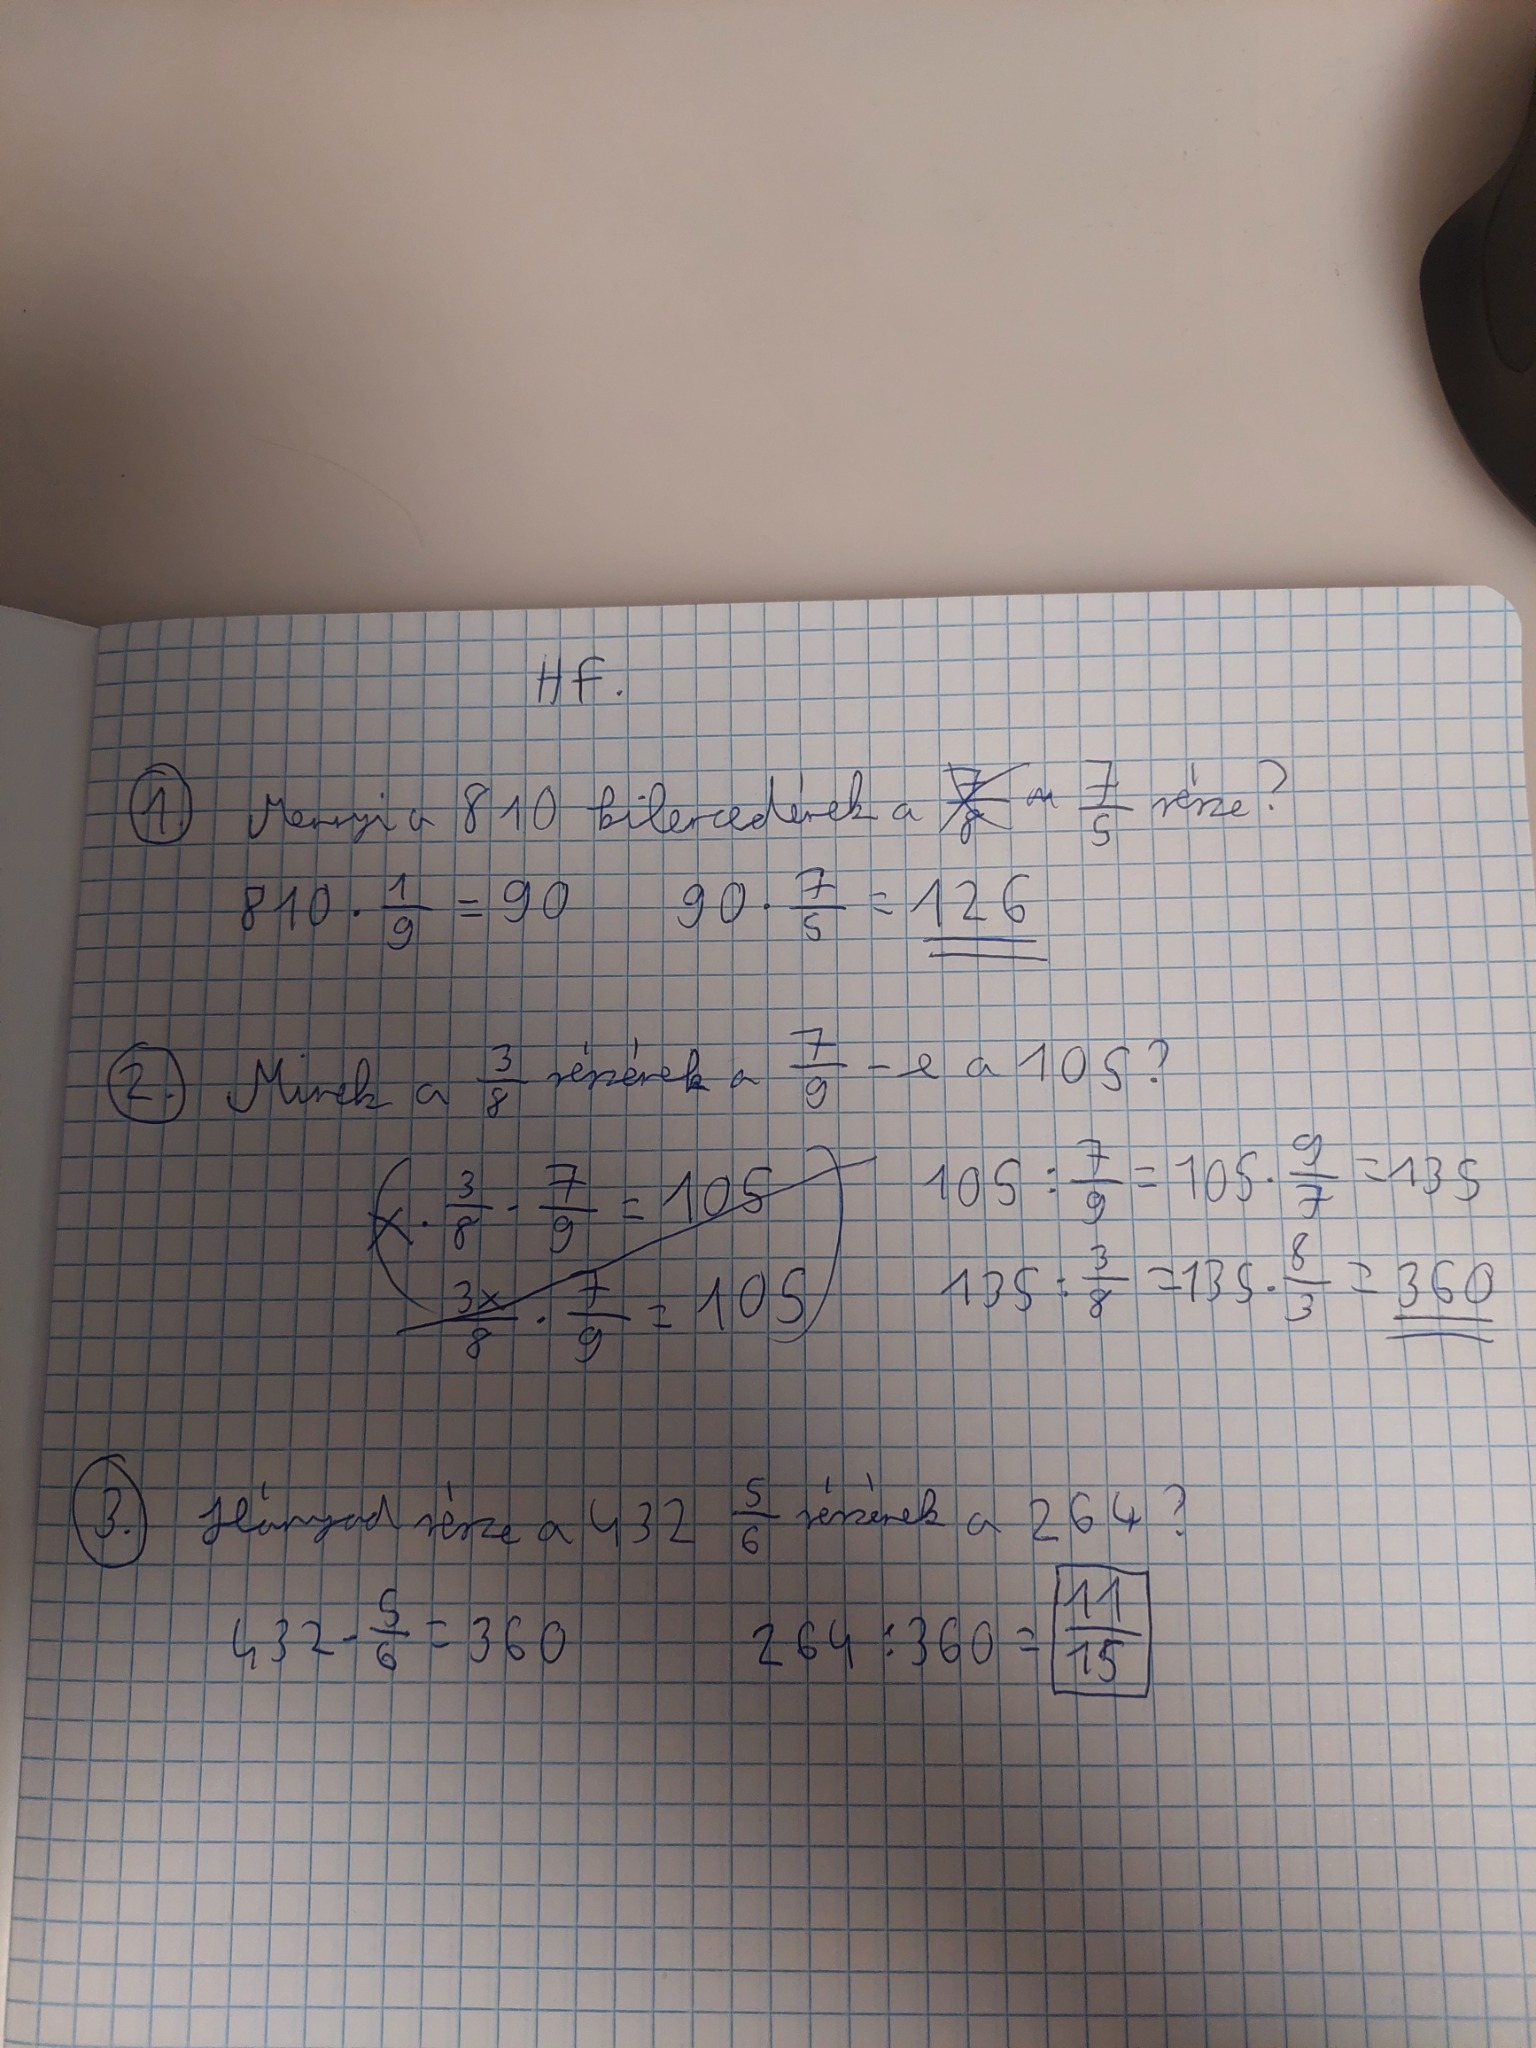 HF.
1. Mennyi a 810 kilencedének a 7/8 a 7/5 része?
810 · 1/9 = 90 90 · 7/5 = 126
2. Minek a 3/8 részének a 7/9 -e a 105?
x · 3/8 · 7/9 = 105 105 : 7/9 = 105 · 9/7 = 135
3x/8 · 7/9 = 105 135 : 3/8 = 135 · 8/3 = 360
3. Hányad része a 432 5/6 részének a 264?
432 · 5/6 = 360 264 : 360 = 11/15